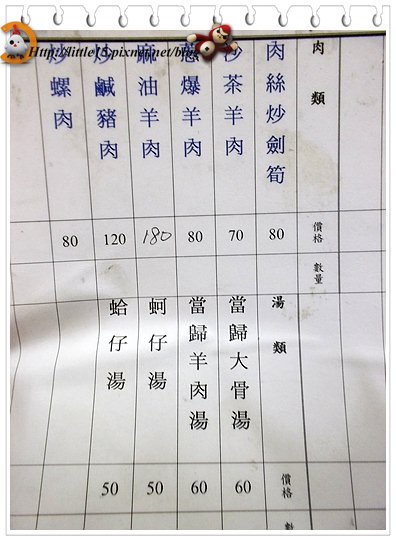 Http://little15.pixnet.net/blog
肉類
肉絲炒劍筍
沙茶羊肉
蔥爆羊肉
麻油羊肉
炒鹹豬肉
炒螺肉
價格
80
70
80
180
120
80
數量
湯類
當歸大骨湯
當歸羊肉湯
蚵仔湯
蛤仔湯
價格
60
60
50
50
數